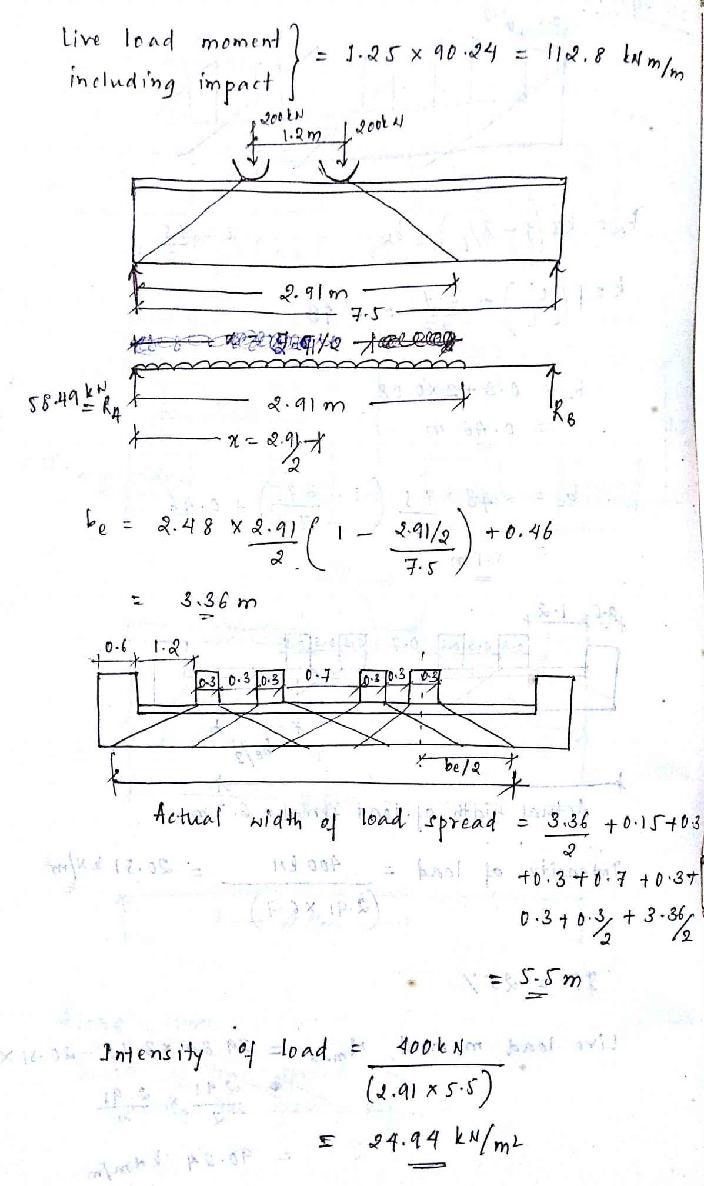 Live load moment including impact } = 1.25 x 90.24 = 112.8 kNm/m
200kN 200kN
1.2m
2.91m
7.5
58.49 kN = RA 2.91m RB
x = 2.91/2
be = 2.48 x 2.91/2 (1 - (2.91/2)/7.5) + 0.46
= 3.36 m
0.6 1.2
0.3 0.3 0.3 0.7 0.3 0.3 0.3
be/2
Actual width of load spread = 3.36/2 + 0.15 + 0.3
+0.3 + 0.7 + 0.3 +
0.3 + 0.3/2 + 3.36/2
= 5.5m
Intensity of load = 400kN/(2.91 x 5.5)
= 24.94 kN/m2